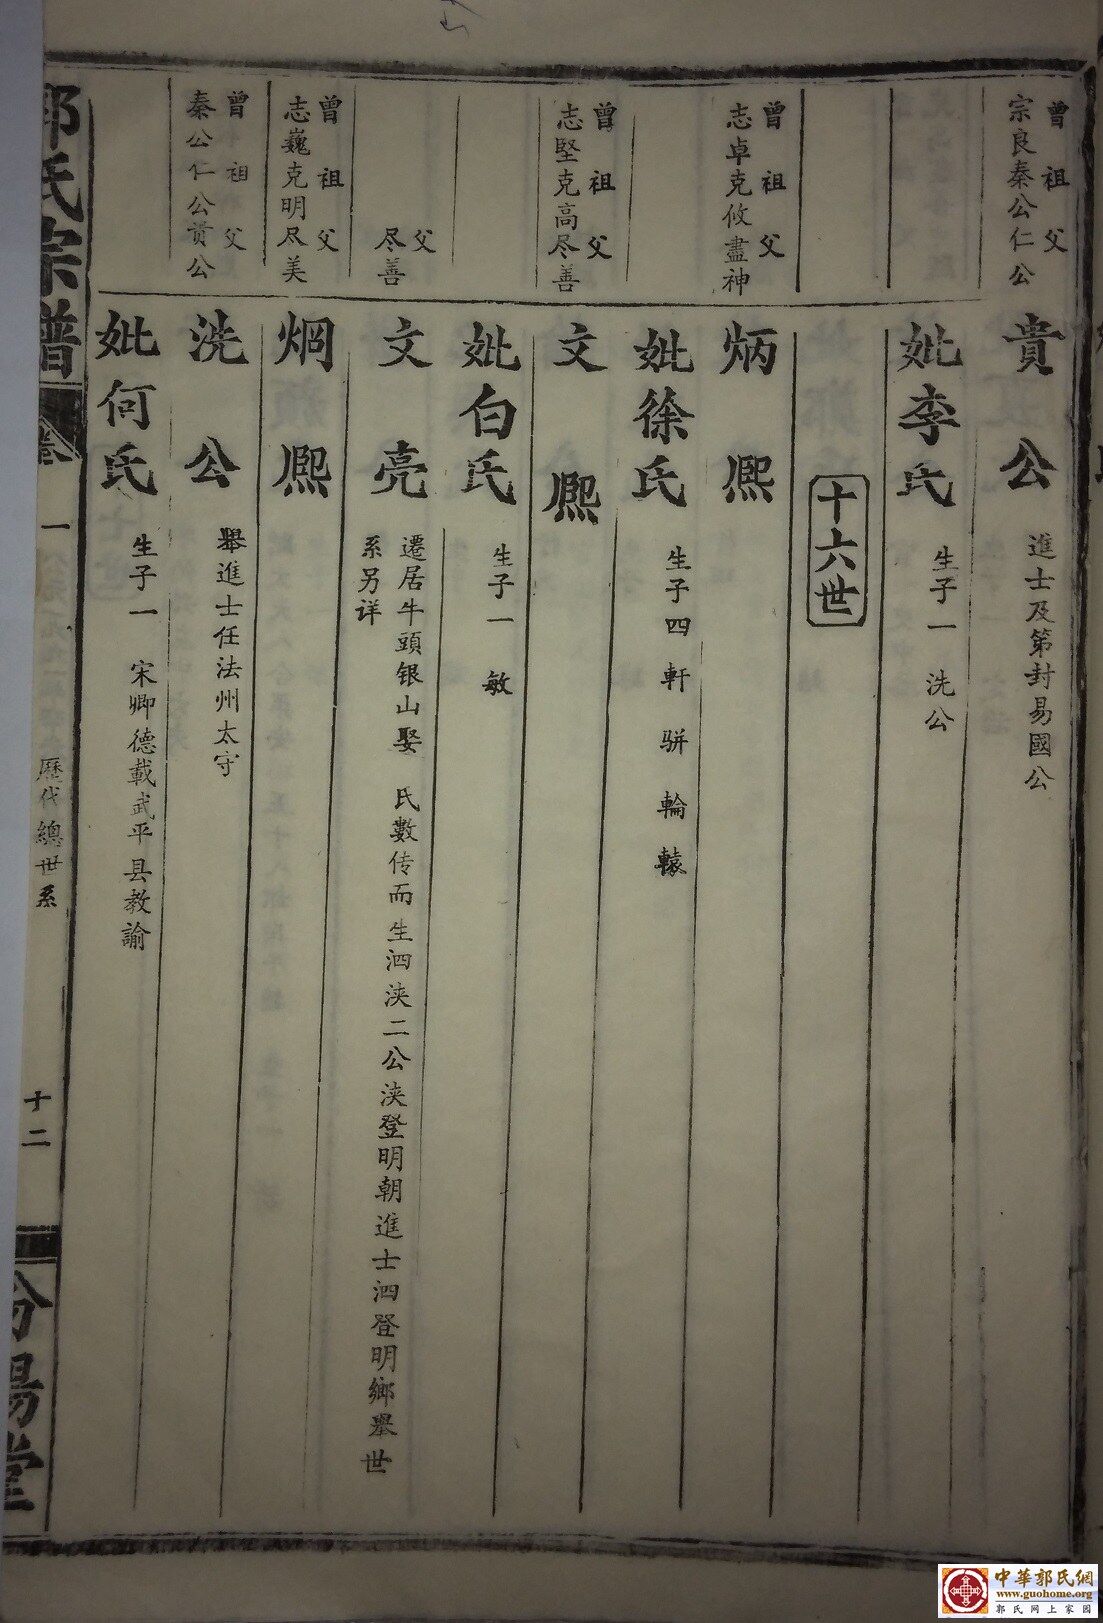 曾祖父
宗良秦公仁公
貴公
進士及第封易國公
妣李氏
生子一 洗公
十六世
曾祖父
志卓克攸盡神
炳熈
妣徐氏
生子四 軒 骈 輪 轅
曾祖父
志堅克高尽善
文熈
妣白氏
生子一 敏
父
尽善
文亮
遷居牛頭银山娶 氏數传而生泗浃二公浃登明朝進士泗登明鄉舉世
系另详
曾祖父
志巍克明尽美
烱熈
曾祖父
秦公仁公贵公
洗公
舉進士任法州太守
妣何氏
生子一 宋卿德載武平县教諭
郭氏宗譜
卷一
歷代總世系
十二
汾陽堂
中華郭氏網
www.guohome.org
郭氏网上家园